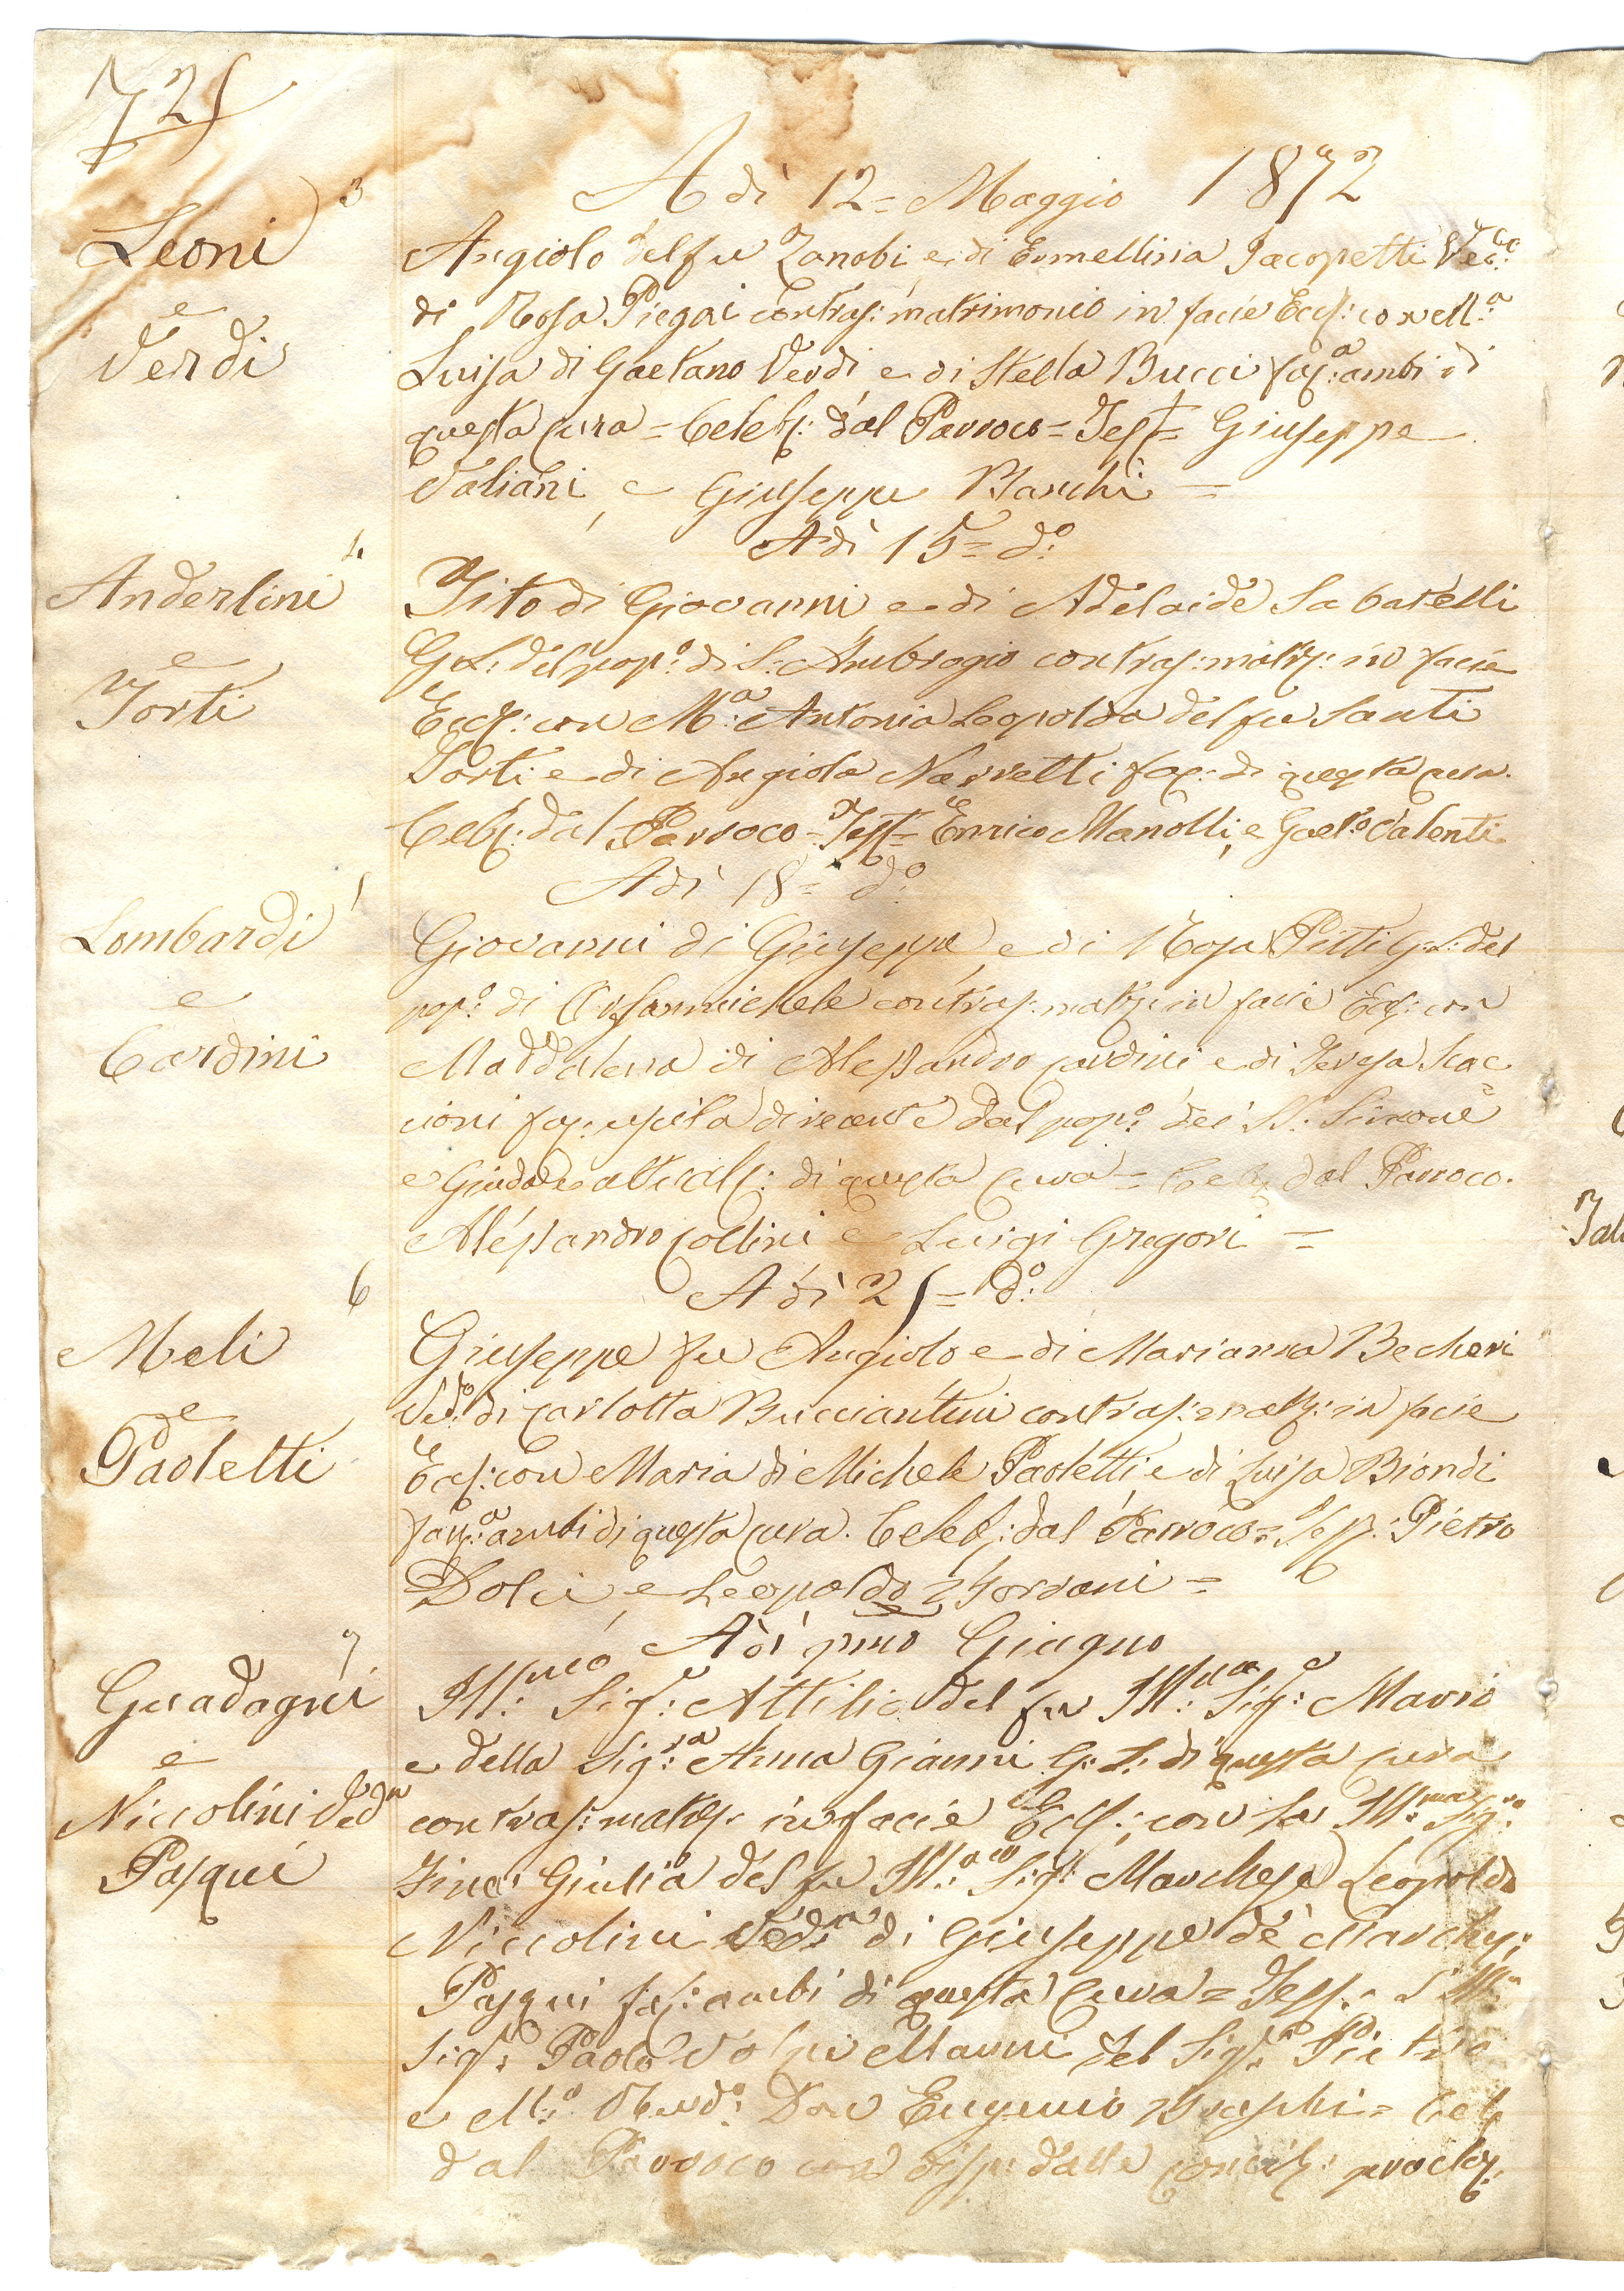 721
A dì 12= Maggio 1872
3
Leoni
e
Verdi
Angiolo del fu Zanobi, e di Ermellinia Jacopetti
di Rosa Piegai contras: matrimonio in facie Eccl:
Luisa di Gaetano Verdi e di Stella Bucci fac:a ambi di
questa cura = Celeb: dal Parroco = Test= Giuseppe
Valiani, e Giuseppe Bianchi =
Adì 15= do:
4
Anderlini
e
Torti
Tito di Giovanni, e di Adelaide Sabatelli
G: L: del pop:o di S: Ambrogio contras: matr: in facie
Eccl: con M:a Antonia Leopolda del fu Santi
Torti e di Angiola Narretti fac: di questa cura.
Celeb: dal Parroco = Test= Enrico Manolli, e Gaet:o Valenti
Adì 18= do:
Lombardi
e
Cardini
Giovanni di Giuseppe, e di Rosa Pitti G: L: del
pop:o di Orsanmichele contras: matr: in facie Eccl: con
Maddalena di Alessandro Cardini e di Teresa Scac
cioni fac: uscita di recente dal pop:o dei SS: Simone
e Giuda e di questa cura = Celeb: dal Parroco.
Alessandro Collini e Luigi Gregori =
Adì 21= do:
6
Meli
e
Paoletti
Giuseppe fu Angiolo e di Marianna Becheri
Ved:o di Carlotta Bucciantini contras: matr: in facie
Eccl: con Maria di Michele Paoletti e di Luisa Biondi
fac:a ambi di questa cura. Celeb: dal Parroco = Test: Pietro
Dolci, e Leopoldo =
Adì pmo Giugno
7
Guadagni
e
Niccolini Ved:a
Pasqui
Ill:mo Sig:e Attilio del fu Ill:mo Sig:e Mario
e della Sig:ra Anna Gianni G: L: di questa cura
contras: matr: in facie Eccl: con la Ill:ma Sig:ra
Giulia del fu Ill:mo Sig:e Marchese Leopoldo
Niccolini Ved:a di Giuseppe de Marchesi
Pasqui fac: ambi di questa Cura = Test: l'Ill:mo
Sig:e Paolo Volpi Manni del Sig:e Pietro
e M:o Rev:do Don Eugenio = Celeb:
dal Parroco con disp: dalle